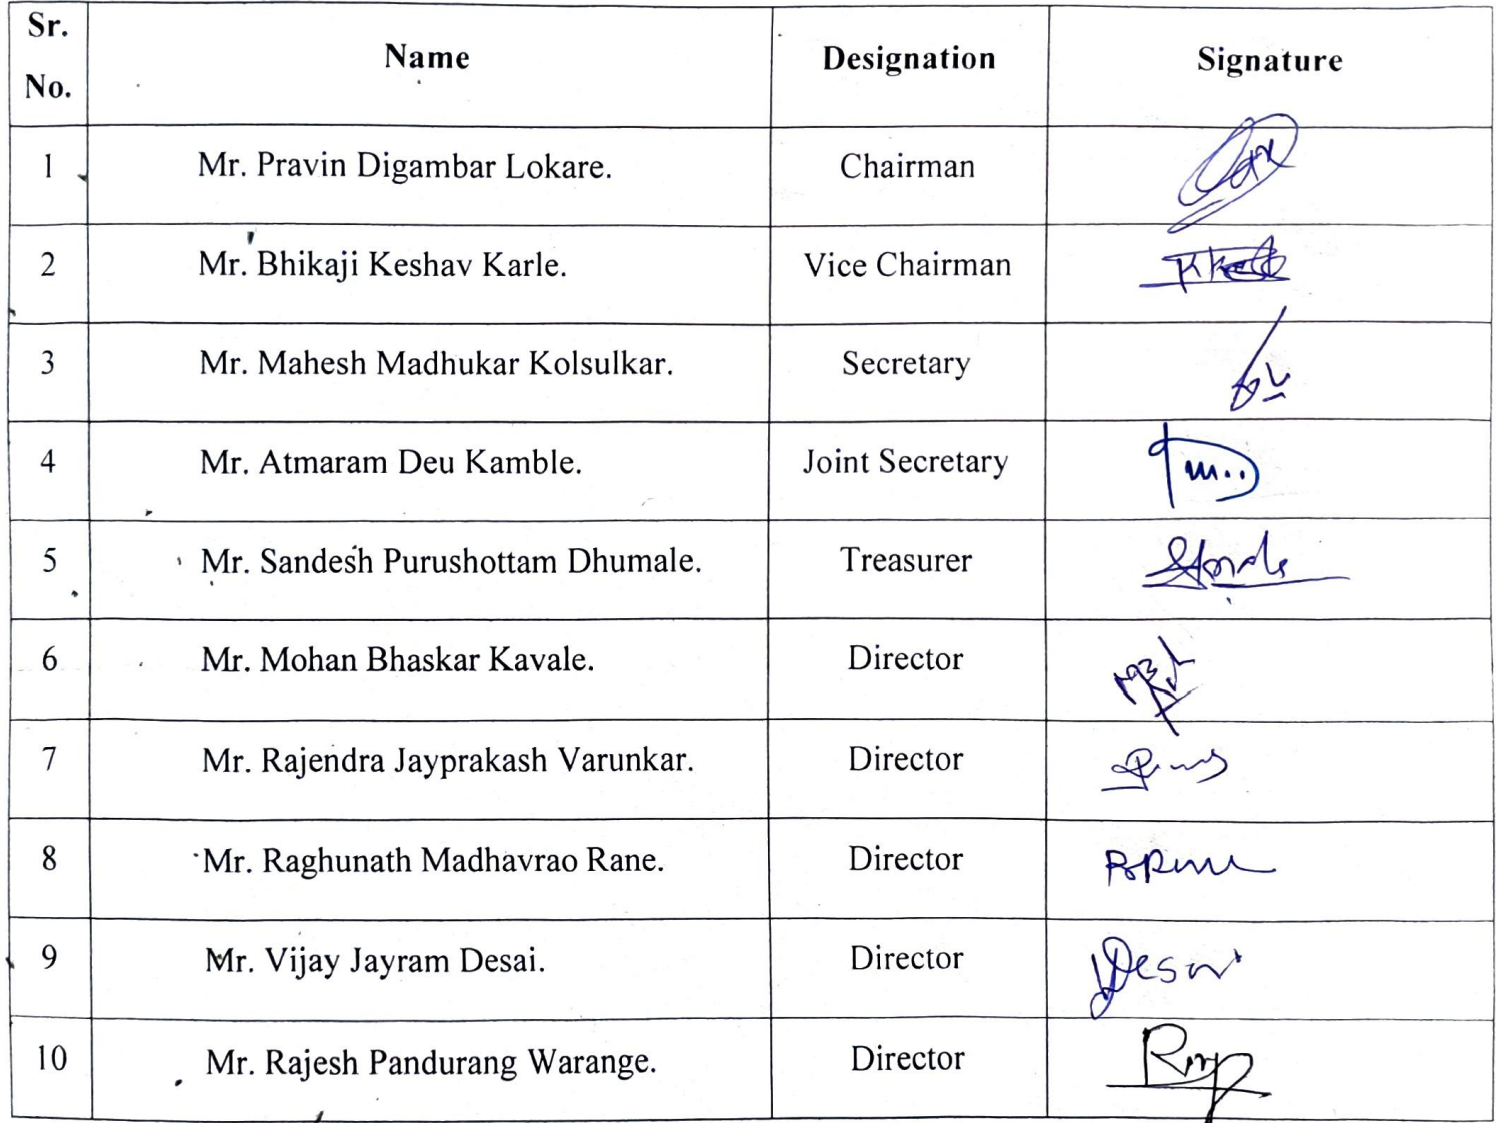 Sr. No. Name Designation Signature
1 Mr. Pravin Digambar Lokare. Chairman
2 Mr. Bhikaji Keshav Karle. Vice Chairman
3 Mr. Mahesh Madhukar Kolsulkar. Secretary
4 Mr. Atmaram Deu Kamble. Joint Secretary
5 Mr. Sandesh Purushottam Dhumale. Treasurer
6 Mr. Mohan Bhaskar Kavale. Director
7 Mr. Rajendra Jayprakash Varunkar. Director
8 Mr. Raghunath Madhavrao Rane. Director
9 Mr. Vijay Jayram Desai. Director
10 Mr. Rajesh Pandurang Warange. Director